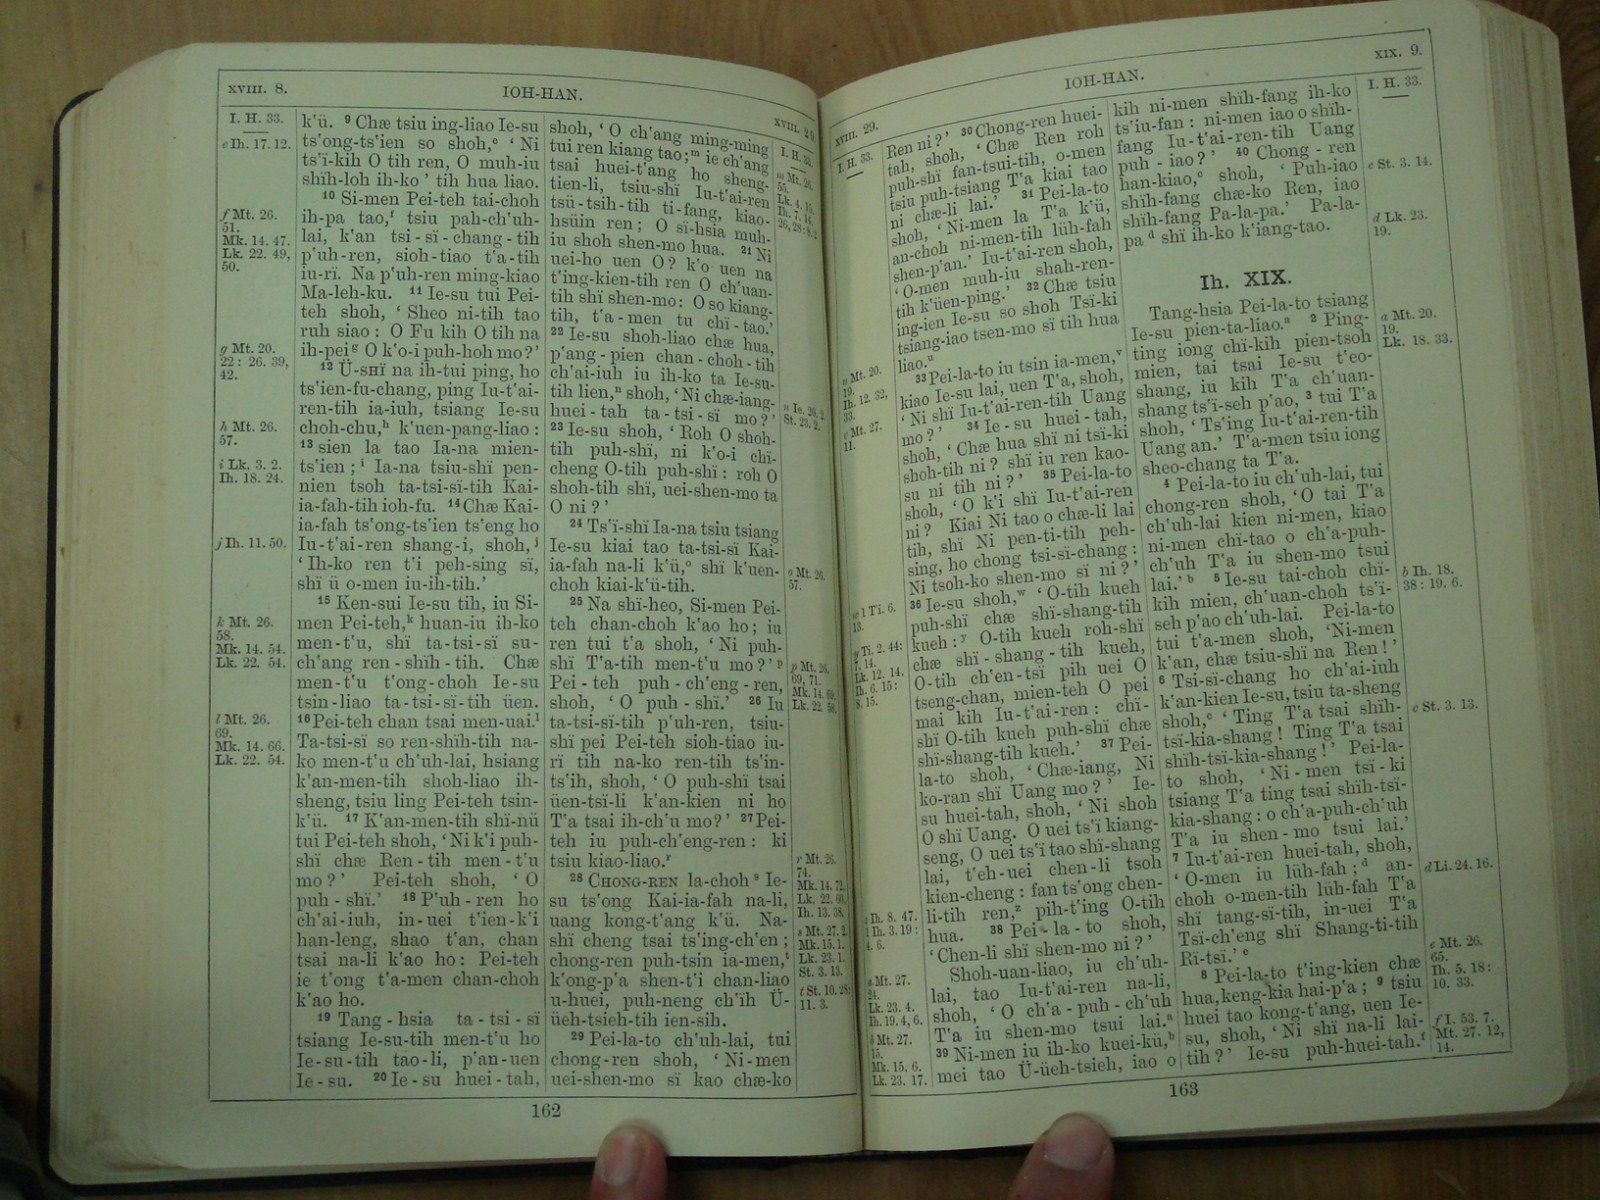 XVIII. 8.
IOH-HAN.
XVIII. 2
I. H. 33.
e Ih. 17. 12.
f Mt. 26.
51.
Mk. 14. 47.
Lk. 22. 49,
50.
g Mt. 20.
22 : 26. 39,
42.
h Mt. 26.
57.
i Lk. 3. 2.
Ih. 18. 24.
j Ih. 11. 50.
k Mt. 26.
58.
Mk. 14. 54.
Lk. 22. 54.
l Mt. 26.
69.
Mk. 14. 66.
Lk. 22. 54.
k'ü. ⁹ Chæ tsiu ing-liao Ie-su
ts'ong-ts'ien so shoh,ᵉ ‘ Ni
ts'ï-kih O tih ren, O muh-iu
shïh-loh ih-ko ’ tih hua liao.
¹⁰ Si-men Pei-teh tai-choh
ih-pa tao,ᶠ tsiu pah-ch'uh-
lai, k'an tsi - sï - chang - tih
p'uh-ren, sioh-tiao t'a-tih
iu-rï. Na p'uh-ren ming-kiao
Ma-leh-ku. ¹¹ Ie-su tui Pei-
teh shoh, ‘ Sheo ni-tih tao
ruh siao : O Fu kih O tih na
ih-peiᵍ O k'o-i puh-hoh mo?’
¹² Ü-SHÏ na ih-tui ping, ho
ts'ien-fu-chang, ping Iu-t'ai-
ren-tih ia-iuh, tsiang Ie-su
choh-chu,ʰ k'uen-pang-liao :
¹³ sien la tao Ia-na mien-
ts'ien ; ⁱ Ia-na tsiu-shï pen-
nien tsoh ta-tsi-sï-tih Kai-
ia-fah-tih ioh-fu. ¹⁴ Chæ Kai-
ia-fah ts'ong-ts'ien ts'eng ho
Iu-t'ai-ren shang-i, shoh,ʲ
‘ Ih-ko ren t'i peh-sing sï,
shï ü o-men iu-ih-tih.’
¹⁵ Ken-sui Ie-su tih, iu Si-
men Pei-teh,ᵏ huan-iu ih-ko
men-t'u, shï ta-tsi-sï su-
ch'ang ren - shïh - tih. Chæ
men-t'u t'ong-choh Ie-su
tsin-liao ta-tsi-sï-tih üen.
¹⁶ Pei-teh chan tsai men-uai.ˡ
Ta-tsi-sï so ren-shïh-tih na-
ko men-t'u ch'uh-lai, hsiang
k'an-men-tih shoh-liao ih-
sheng, tsiu ling Pei-teh tsin-
k'ü. ¹⁷ K'an-men-tih shï-nü
tui Pei-teh shoh, ‘ Ni k'i puh-
shï chæ Ren - tih men - t'u
mo ? ’ Pei-teh shoh, ‘ O
puh - shï.’ ¹⁸ P'uh - ren ho
ch'ai-iuh, in-uei t'ien-k'i
han-leng, shao t'an, chan
tsai na-li k'ao ho : Pei-teh
ie t'ong t'a-men chan-choh
k'ao ho.
¹⁹ Tang - hsia ta - tsi - sï
tsiang Ie-su-tih men-t'u ho
Ie - su - tih tao-li, p'an-uen
Ie - su. ²⁰ Ie - su huei - tah,
shoh, ‘ O ch'ang ming-ming
tui ren kiang tao ;ᵐ ie ch'ang
tsai huei-t'ang ho sheng-
tien-li, tsiu-shï Iu-t'ai-ren
tsü - tsih-tih ti-fang, kiao-
hsüin ren ; O sï-hsia muh-
iu shoh shen-mo hua. ²¹ Ni
uei-ho uen O ? k'o uen na
t'ing-kien-tih ren O ch'uan-
tih shï shen-mo : O so kiang-
tih, t'a - men tu chï - tao.’
²² Ie-su shoh-liao chæ hua,
p'ang - pien chan - choh - tih
ch'ai-iuh iu ih-ko ta Ie-su-
tih lien,ⁿ shoh, ‘ Ni chæ-iang-
huei - tah ta - tsi - sï mo ? ’
²³ Ie-su shoh, ‘ Roh O shoh-
tih puh-shï, ni k'o-i chï-
cheng O-tih puh-shï : roh O
shoh-tih shï, uei-shen-mo ta
O ni ? ’
²⁴ Ts'ï-shï Ia-na tsiu tsiang
Ie-su kiai tao ta-tsi-sï Kai-
ia-fah na-li k'ü,ᵒ shï k'uen-
choh kiai-k'ü-tih.
²⁵ Na shï-heo, Si-men Pei-
teh chan-choh k'ao ho ; iu
ren tui t'a shoh, ‘ Ni puh-
shï T'a-tih men-t'u mo ? ’ ᵖ
Pei - teh puh - ch'eng - ren,
shoh, ‘ O puh - shï.’ ²⁶ Iu
ta-tsi-sï-tih p'uh-ren, tsiu-
shï pei Pei-teh sioh-tiao iu-
rï tih na-ko ren-tih ts'in-
ts'ih, shoh, ‘ O puh-shï tsai
üen-tsï-li k'an-kien ni ho
T'a tsai ih-ch'u mo?’ ²⁷ Pei-
teh iu puh-ch'eng-ren : ki
tsiu kiao-liao.ʳ
²⁸ CHONG-REN la-choh ˢ Ie-
su ts'ong Kai-ia-fah na-li,
uang kong-t'ang k'ü. Na-
shï cheng tsai ts'ing-ch'en ;
chong-ren puh-tsin ia-men,ᵗ
k'ong-p'a shen-t'i chan-liao
u-huei, puh-neng ch'ïh Ü-
üeh-tsieh-tih ien-sih.
²⁹ Pei-la-to ch'uh-lai, tui
chong-ren shoh, ‘ Ni-men
uei-shen-mo sï kao chæ-ko
I. H. 33.
m Mt. 26.
55.
Lk. 4. 15.
Ih. 7. 14,
n Ie. 20. 2.
St. 23. 2.
o Mt. 26.
57.
p Mt. 26.
69, 71.
Mk. 14. 69.
Lk. 22. 58.
r Mt. 26.
74.
Mk. 14. 72.
Lk. 22. 60.
Ih. 13. 38.
s Mt. 27. 2.
Mk. 15. 1.
Lk. 23. 1.
St. 3. 13.
t St. 10. 28:
11. 3.
162
XVIII. 29.
IOH-HAN.
XIX. 9.
I. H. 33.
u Mt. 20.
19.
Ih. 12. 32,
33.
v Mt. 27.
11.
1 Ti. 6.
13.
Ti. 2. 44:
7. 14.
Lk. 12. 14.
Ih. 6. 15:
8. 15.
Ih. 8. 47.
Ih. 3. 19:
4. 6.
a Mt. 27.
24.
Lk. 23. 4.
Ih. 19. 4, 6.
b Mt. 27.
15.
Mk. 15. 6.
Lk. 23. 17.
Ren ni ? ’ ³⁰ Chong-ren huei-
tah, shoh, ‘ Chæ Ren roh
puh-shï fan-tsui-tih, o-men
tsiu puh-tsiang T'a kiai tao
ni chæ-li lai.’ ³¹ Pei-la-to
shoh, ‘ Ni-men la T'a k'ü,
an-choh ni-men-tih lüh-fah
shen-p'an.’ Iu-t'ai-ren shoh,
‘ O-men muh-iu shah-ren-
tih k'üen-ping.’ ³² Chæ tsiu
ing-ien Ie-su so shoh Tsï-ki
tsiang-iao tsen-mo sï tih hua
liao.ᵘ
³³ Pei-la-to iu tsin ia-men,ᵛ
kiao Ie-su lai, uen T'a, shoh,
‘ Ni shï Iu-t'ai-ren-tih Uang
mo ? ’ ³⁴ Ie - su huei - tah,
shoh, ‘ Chæ hua shï ni tsï-ki
shoh-tih ni ? shï iu ren kao-
su ni tih ni ? ’ ³⁵ Pei-la-to
shoh, ‘ O k'i shï Iu-t'ai-ren
ni ? Kiai Ni tao o chæ-li lai
tih, shï Ni pen-ti-tih peh-
sing, ho chong tsi-sï-chang :
Ni tsoh-ko shen-mo sï ni ? ’
³⁶ Ie-su shoh,ʷ ‘ O-tih kueh
puh-shï chæ shï-shang-tih
kueh : ʸ O-tih kueh roh-shï
chæ shï - shang - tih kueh,
O-tih ch'en-tsï pih uei O
tseng-chan, mien-teh O pei
mai kih Iu-t'ai-ren : chï-
shï O-tih kueh puh-shï chæ
shï-shang-tih kueh.’ ³⁷ Pei-
la-to shoh, ‘ Chæ-iang, Ni
ko-ran shï Uang mo ? ’ Ie-
su huei-tah, shoh, ‘ Ni shoh
O shï Uang. O uei ts'ï kiang-
seng, O uei ts'ï tao shï-shang
lai, t'eh-uei chen-li tsoh
kien-cheng : fan ts'ong chen-
li-tih ren,ᶻ pih-t'ing O-tih
hua. ³⁸ Pei - la - to shoh,
‘ Chen-li shï shen-mo ni ? ’
Shoh-uan-liao, iu ch'uh-
lai, tao Iu-t'ai-ren na-li,
shoh, ‘ O ch'a - puh - ch'uh
T'a iu shen-mo tsui lai.ᵃ
³⁹ Ni-men iu ih-ko kuei-kü,ᵇ
mei tao Ü-üeh-tsieh, iao o
kih ni-men shïh-fang ih-ko
ts'iu-fan : ni-men iao o shïh-
fang Iu-t'ai-ren-tih Uang
puh - iao ? ’ ⁴⁰ Chong - ren
han-kiao,ᶜ shoh, ‘ Puh-iao
shïh-fang chæ-ko Ren, iao
shïh-fang Pa-la-pa.’ Pa-la-
pa ᵈ shï ih-ko k'iang-tao.
Ih. XIX.
Tang-hsia Pei-la-to tsiang
Ie-su pien-ta-liao.ᵃ ² Ping-
ting iong chï-kih pien-tsoh
mien, tai tsai Ie-su t'eo-
shang, iu kih T'a ch'uan-
shang ts'ï-seh p'ao, ³ tui T'a
shoh, ‘ Ts'ing Iu-t'ai-ren-tih
Uang an.’ T'a-men tsiu iong
sheo-chang ta T'a.
⁴ Pei-la-to iu ch'uh-lai, tui
chong-ren shoh, ‘ O tai T'a
ch'uh-lai kien ni-men, kiao
ni-men chï-tao o ch'a-puh-
ch'uh T'a iu shen-mo tsui
lai.’ ᵇ ⁵ Ie-su tai-choh chï-
kih mien, ch'uan-choh ts'ï-
seh p'ao ch'uh-lai. Pei-la-to
tui t'a-men shoh, ‘Ni-men
k'an, chæ tsiu-shï na Ren ! ’
⁶ Tsi-sï-chang ho ch'ai-iuh
k'an-kien Ie-su, tsiu ta-sheng
shoh,ᶜ ‘ Ting T'a tsai shïh-
tsï-kia-shang ! Ting T'a tsai
shïh-tsï-kia-shang ! ’ Pei-la-
to shoh, ‘ Ni - men tsï - ki
tsiang T'a ting tsai shïh-tsï-
kia-shang : o ch'a-puh-ch'uh
T'a iu shen - mo tsui lai.’
⁷ Iu-t'ai-ren huei-tah, shoh,
‘ O-men iu lüh-fah ; ᵈ an-
choh o-men-tih lüh-fah T'a
shï tang-sï-tih, in-uei T'a
Tsï-ch'eng shï Shang-ti-tih
Rï-tsï.’ ᵉ
⁸ Pei-la-to t'ing-kien chæ
hua, keng-kia hai-p'a ; ⁹ tsiu
huei tao kong-t'ang, uen Ie-
su, shoh, ‘ Ni shï na-li lai-
tih ? ’ Ie-su puh-huei-tah.ᶠ
I. H. 33.
c St. 3. 14.
d Lk. 23.
19.
a Mt. 20.
19.
Lk. 18. 33.
b Ih. 18.
38 : 19. 6.
c St. 3. 13.
d Li. 24. 16.
e Mt. 26.
65.
Ih. 5. 18:
10. 33.
f I. 53. 7.
Mt. 27. 12,
14.
163